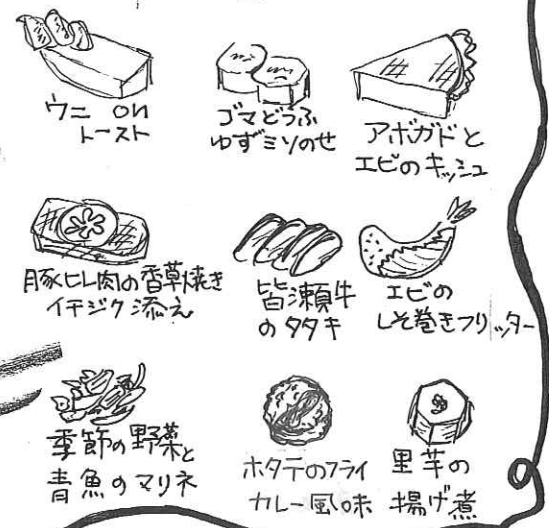 ウニ on
トースト
ゴマどうふ
ゆずミソのせ
アボガドと
エビのキッシュ
豚ヒレ肉の香草焼き
イチジク添え
皆瀬牛
のタタキ
エビの
しそ巻きフリッター
季節の野菜と
青魚のマリネ
ホタテのフライ
カレー風味
里芋の
揚げ煮